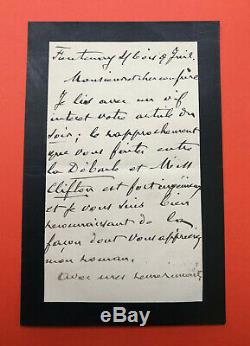 Fontenay s/ Bois 9 Juil.
Monsieur et cher confrère
Je lis avec un vif
intérêt votre article du
Soir ; le rapprochement
que vous faites entre
la Débacle et Miss
Clifton est fort ingénieux
et je vous suis bien
reconnaissant de la
façon dont vous appréciez
mon roman.
Avec mes remerciements
ebay